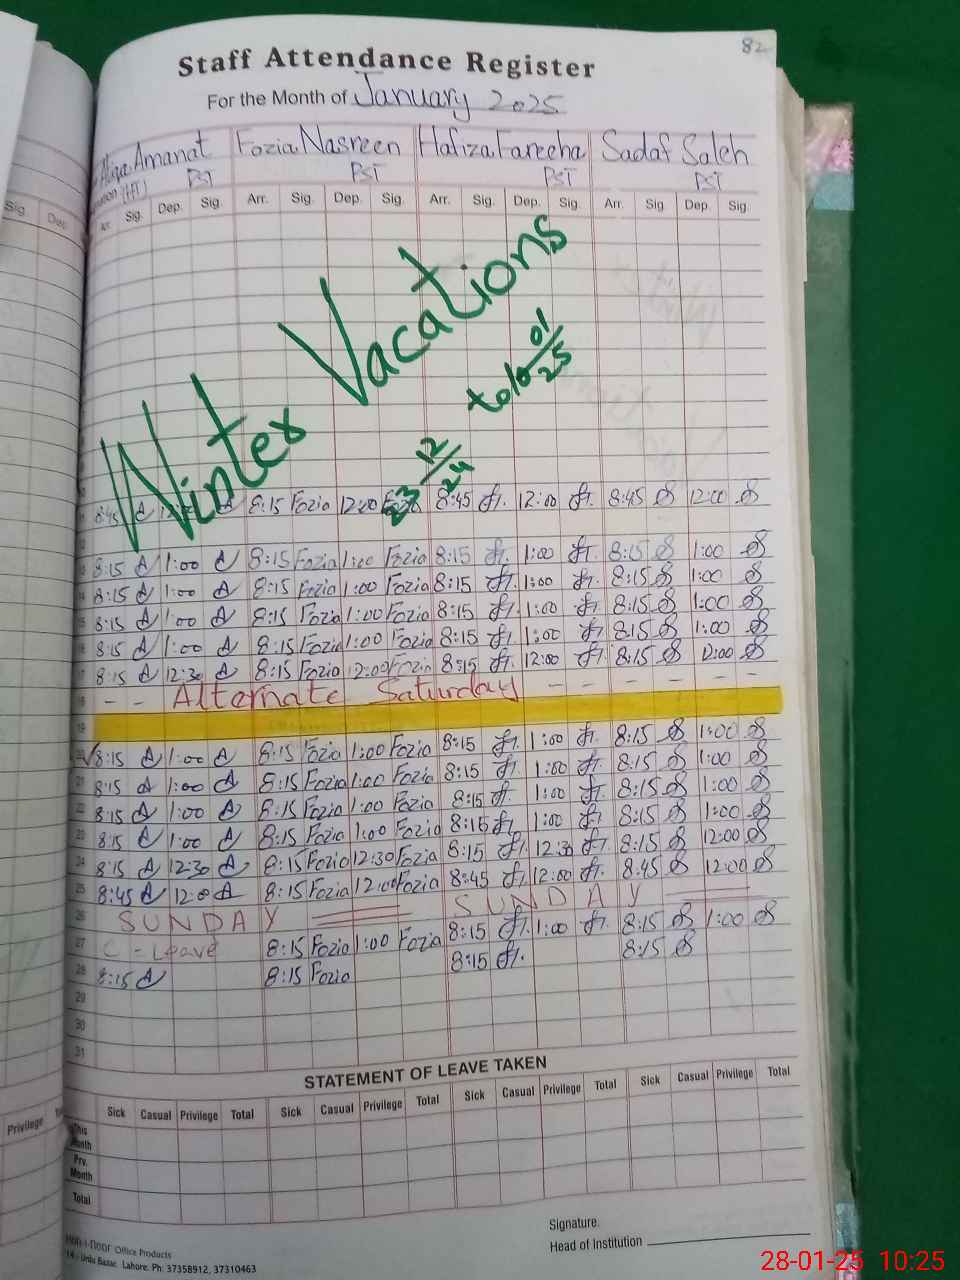 82
Staff Attendance Register
For the Month of January 2025
Aliqa Amanat Fozia Nasreen Hafiza Fareeha Sadaf Saleh
(HT) PST PST PST PST
Arr. Sig. Dep. Sig. Arr. Sig. Dep. Sig. Arr. Sig. Dep. Sig. Arr. Sig. Dep. Sig.
Winter Vacations
23 12/24 to 10 01/25
8:45 A A 8:15 Fozia 12:00 8:45 ff. 12:00 ff. 8:45 S 12:00 S
13 8:15 A 1:00 A 8:15 Fozia 1:00 Fozia 8:15 ff. 1:00 ff. 8:15 S 1:00 S
14 8:15 A 1:00 A 8:15 Fozia 1:00 Fozia 8:15 ff. 1:00 ff. 8:15 S 1:00 S
15 8:15 A 1:00 A 8:15 Fozia 1:00 Fozia 8:15 ff. 1:00 ff. 8:15 S 1:00 S
16 8:15 A 1:00 A 8:15 Fozia 1:00 Fozia 8:15 ff. 1:00 ff. 8:15 S 1:00 S
17 8:15 A 12:30 A 8:15 Fozia 12:00 Fozia 8:15 ff. 12:00 ff. 8:15 S 12:00 S
18 - - Alternate Saturday - - - - - -
19
20 8:15 A 1:00 A 8:15 Fozia 1:00 Fozia 8:15 ff. 1:00 ff. 8:15 S 1:00 S
21 8:15 A 1:00 A 8:15 Fozia 1:00 Fozia 8:15 ff. 1:00 ff. 8:15 S 1:00 S
22 8:15 A 1:00 A 8:15 Fozia 1:00 Fozia 8:15 ff. 1:00 ff. 8:15 S 1:00 S
23 8:15 A 1:00 A 8:15 Fozia 1:00 Fozia 8:15 ff. 1:00 ff. 8:15 S 1:00 S
24 8:15 A 12:30 A 8:15 Fozia 12:30 Fozia 8:15 ff. 12:30 ff. 8:15 S 12:00 S
25 8:45 A 12:00 A 8:15 Fozia 12:00 Fozia 8:45 ff. 12:00 ff. 8:45 S 12:00 S
26 SUNDAY SUNDAY
27 C-Leave 8:15 Fozia 1:00 Fozia 8:15 ff. 1:00 ff. 8:15 S 1:00 S
28 8:15 A 8:15 Fozia 8:15 ff. 8:15 S
29
30
31
STATEMENT OF LEAVE TAKEN
Sick Casual Privilege Total Sick Casual Privilege Total Sick Casual Privilege Total Sick Casual Privilege Total
This Month
Prv. Month
Total
Signature.
Head of Institution
Office Products
Urdu Bazar. Lahore. Ph: 37358912, 37310463
Sig. Dep.
Privilege
28-01-25 10:25